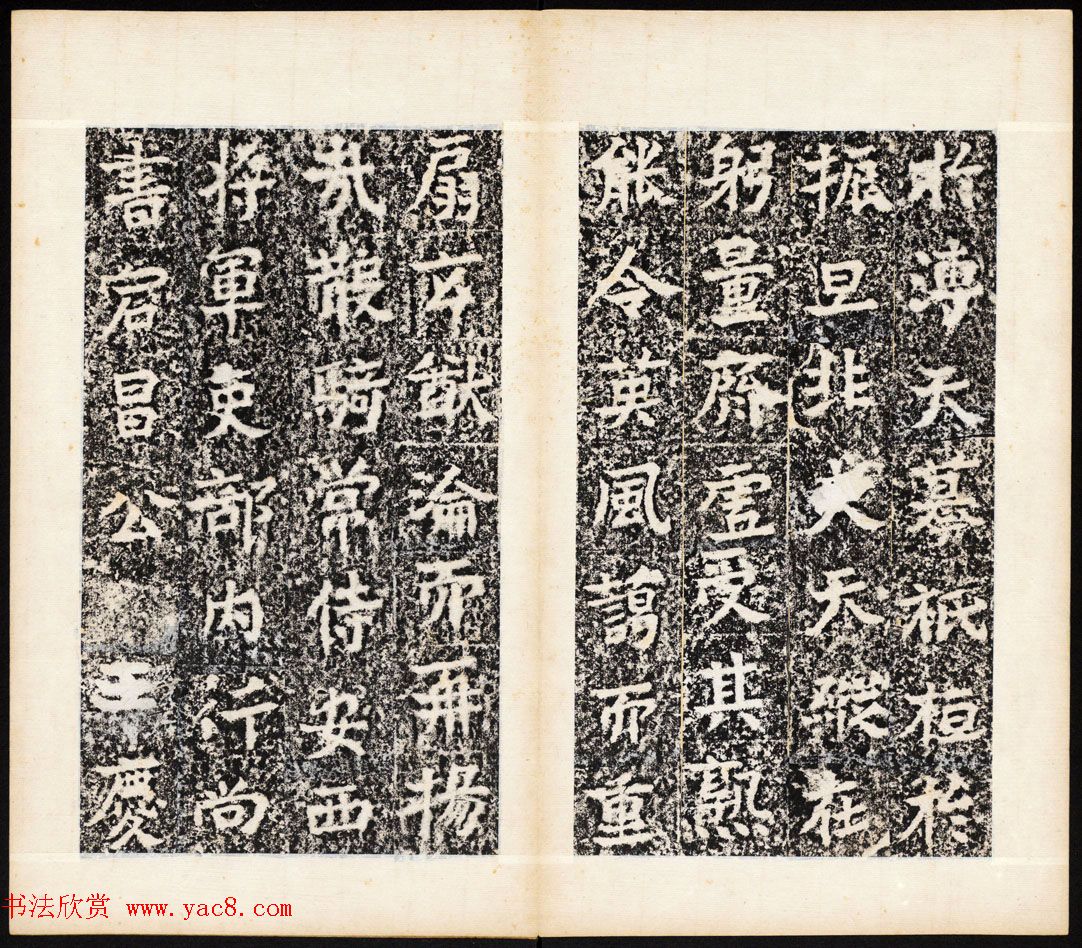 於溥天摹祇桓於
振旦非大天縱在
躬量齊虛受其熟
能令英風藹而重
扇玄猷淪而再揚
哉散騎常侍安西
將軍吏部內行尚
書宕昌公王慶
书法欣赏 www.yac8.com